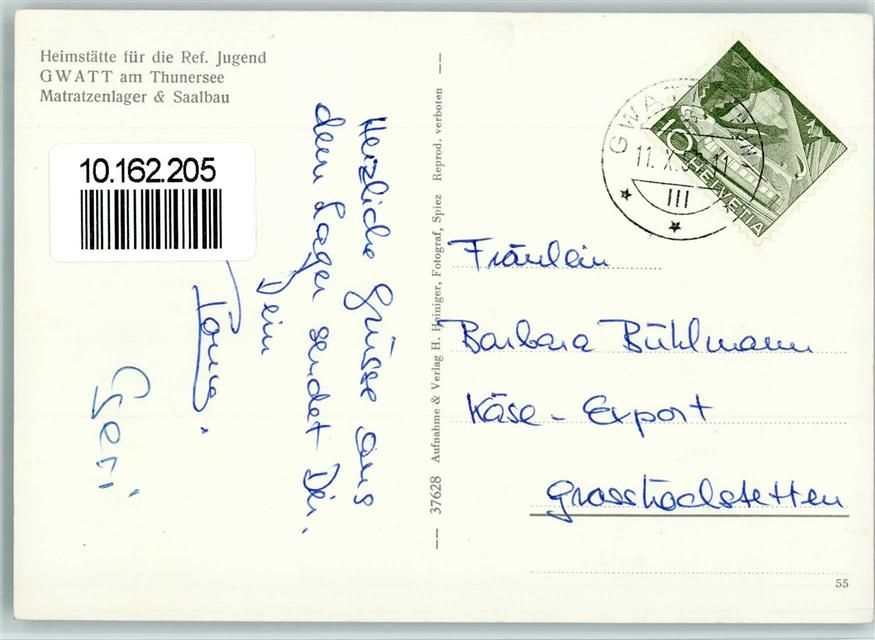 Heimstätte für die Ref. Jugend
GWATT am Thunersee
Matratzenlager & Saalbau
10.162.205
Herzliche Grüsse aus
dem Lager sendet Dir,
Dein
-- 37628 Aufnahme & Verlag H. Heiniger, Fotograf, Spiez Reprod. verboten --
GWATT
11. X. 5
11
III
10 HELVETIA
Fräulein
Barbara Bühlmann
Käse - Export
Grosshöchstetten
55